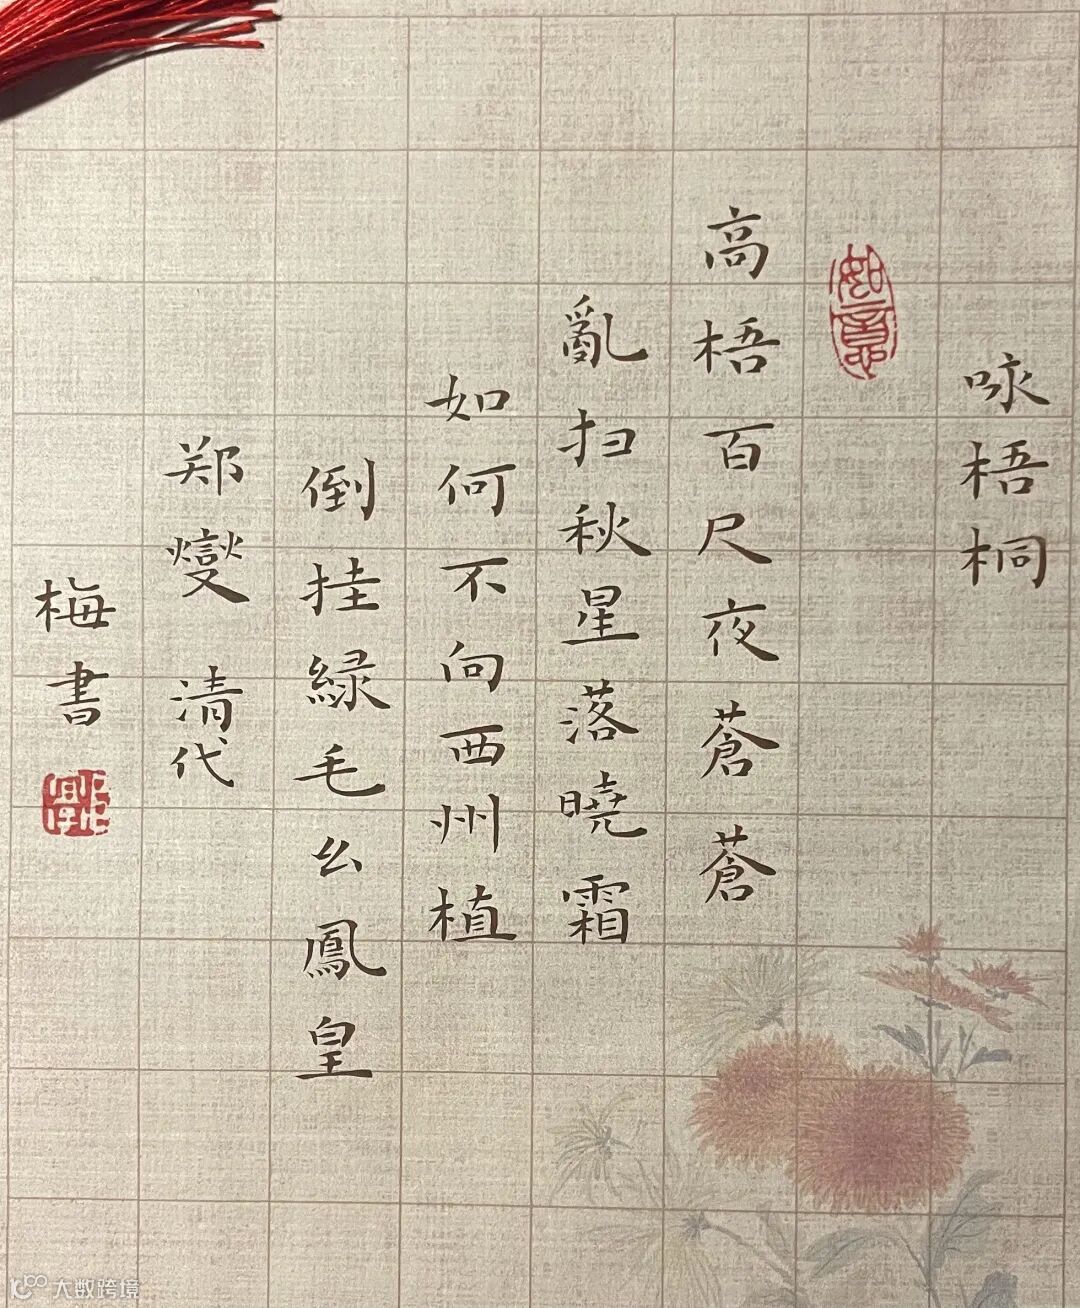 咏梧桐
如意
高梧百尺夜蒼蒼
亂扫秋星落曉霜
如何不向西州植
倒挂緑毛幺鳳皇
郑燮 清代
梅書
大数跨境